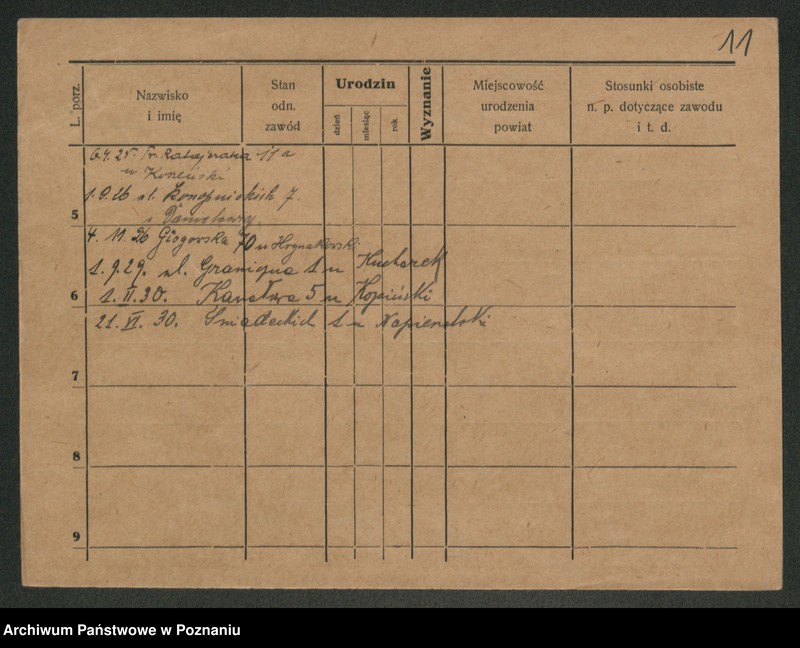 11
L. porz.
Nazwisko i imię
Stan odn. zawód
Urodzin
dzień
miesiąc
rok
Wyznanie
Miejscowość urodzenia powiat
Stosunki osobiste n. p. dotyczące zawodu i t. d.
6.4.25. Fr. Ratajczaka 11a
u
1.9.26 ul. 7.
5
4. 11. 26 Głogowska 70 u
1.9.29. ul. Graniczna 1 u Kucharek
6
1. II. 30. Kanałowa 5 u Kopiński
21. VI. 30. Śniadeckich 1 u Napieralski
7
8
9
Archiwum Państwowe w Poznaniu